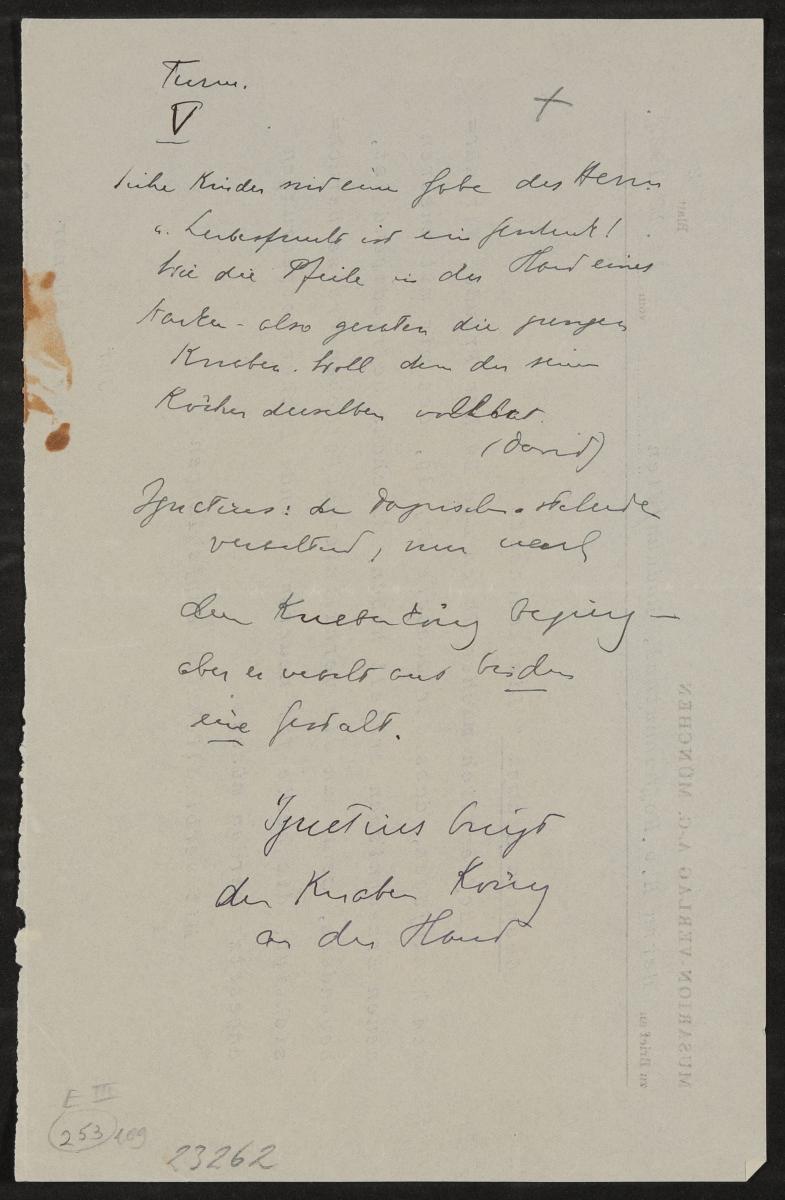 Turm.
V
+
Siehe Kinder sind eine Gabe des Herrn
u. Leibesfrucht ist ein Geschenk!
Wie die Pfeile in der Hand eines
starken – also geraten die jungen
Knaben. Woll dem der seinen
Köcher derselben voll hat.
(David)
Ignatius: der
verachtend, nur nach
dem Knabenkönig begierig —
aber er webt aus beiden
eine Gestalt.
Ignatius bringt
den Knaben König
an der Hand
E III
253 109
23262
MUSARION-VERLAG A.G. MÜNCHEN
zu Brief an
vom
Blatt